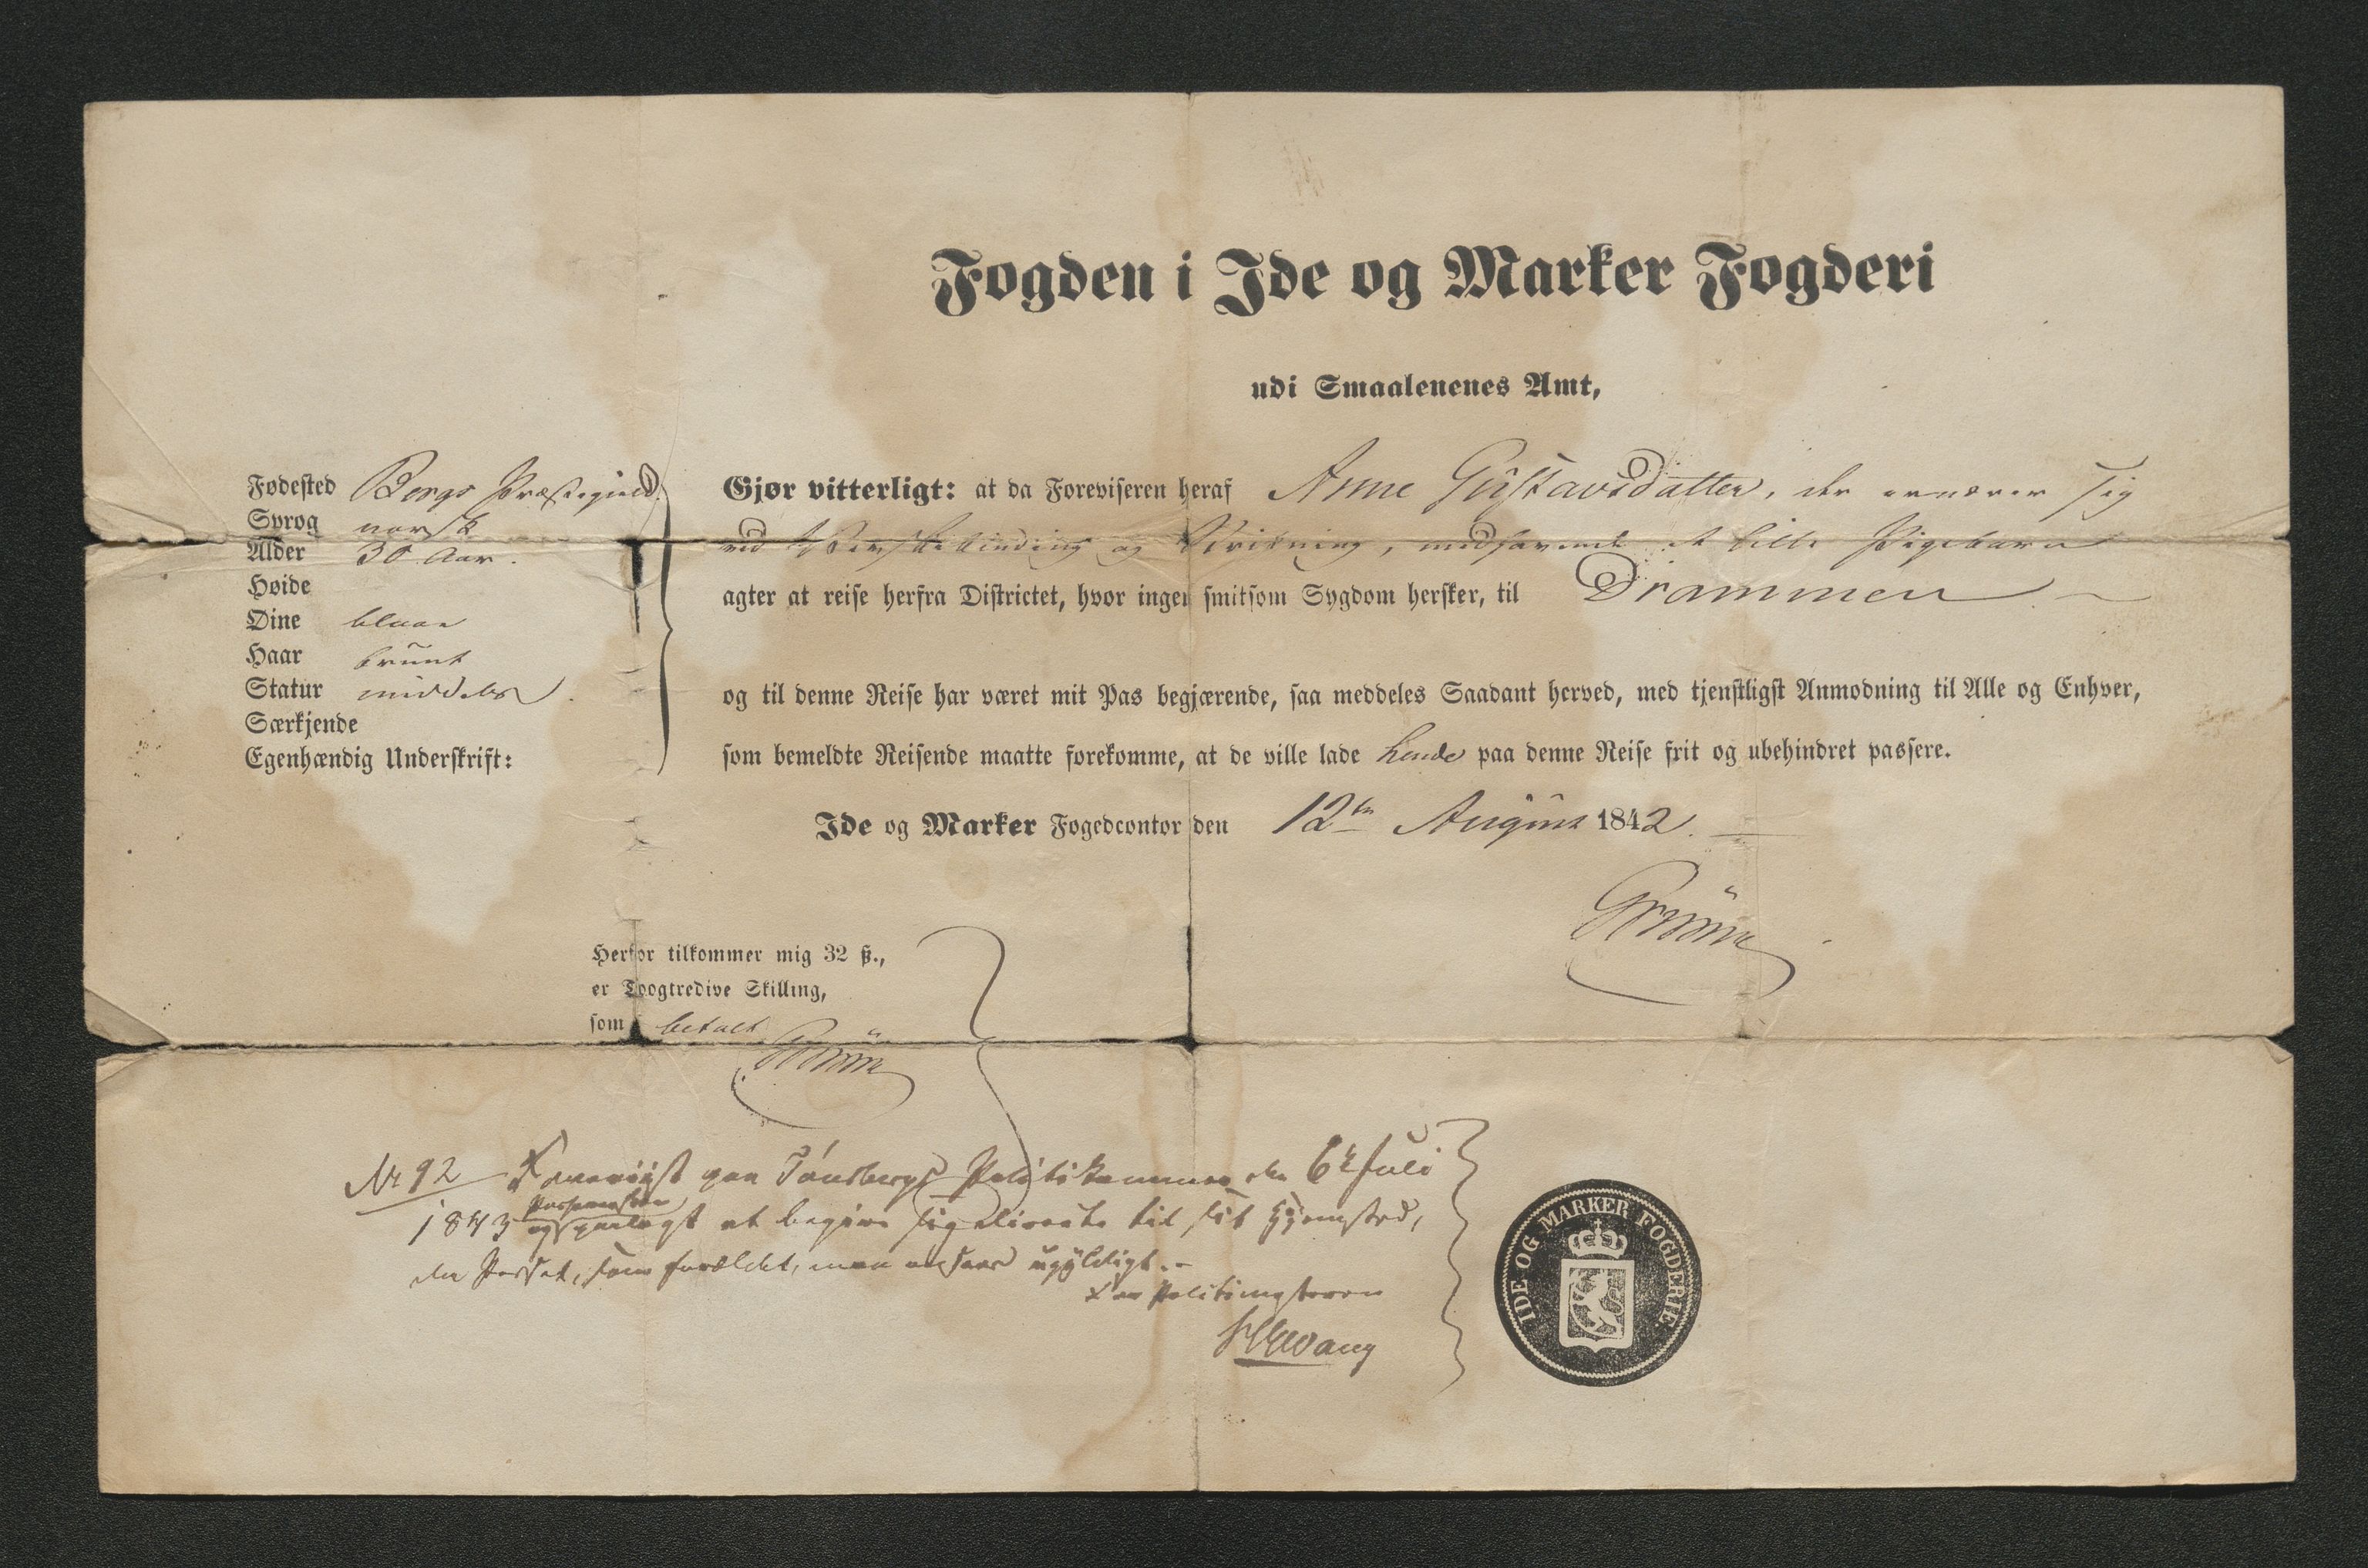 Fogden i Ide og Marker Fogderi
udi Smaalenenes Amt,
Fødested Bergs Præstegield
Sprog norsk
Alder 30 Aar.
Høide
Øine blaae
Haar brunt
Statur middels.
Særkjende
Egenhændig Underskrift:
Gjør vitterligt: at da Foreviseren heraf Anne Gustavsdatter, der ernærer sig
ved og medhavende et lille Pigebarn
agter at reise herfra Districtet, hvor ingen smitsom Sygdom hersker, til Drammen
og til denne Reise har været mit Pas begjærende, saa meddeles Saadant herved, med tjenstligst Anmodning til Alle og Enhver,
som bemeldte Reisende maatte forekomme, at de ville lade hende paa denne Reise frit og ubehindret passere.
Ide og Marker Fogedcontor den 12te August 1842.
Herfor tilkommer mig 32 ß.,
er Toogtredive Skilling,
som betalt
Nr 92 Foreviist paa Tønsbergs Politikammer den 6te Juli
1843 og paalagt at begive sig directe til sit Hjemsted,
da Passet, som forældet, maa ansees ugyldigt.-
For Politimesteren
IDE OG MARKER FOGDERIE